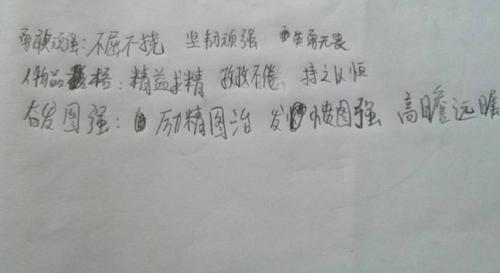 勇敢顽强：不屈不挠 坚韧顽强 英勇无畏
人物品格：精益求精 孜孜不倦 持之以恒
奋发图强：励精图治 发愤图强 高瞻远瞩